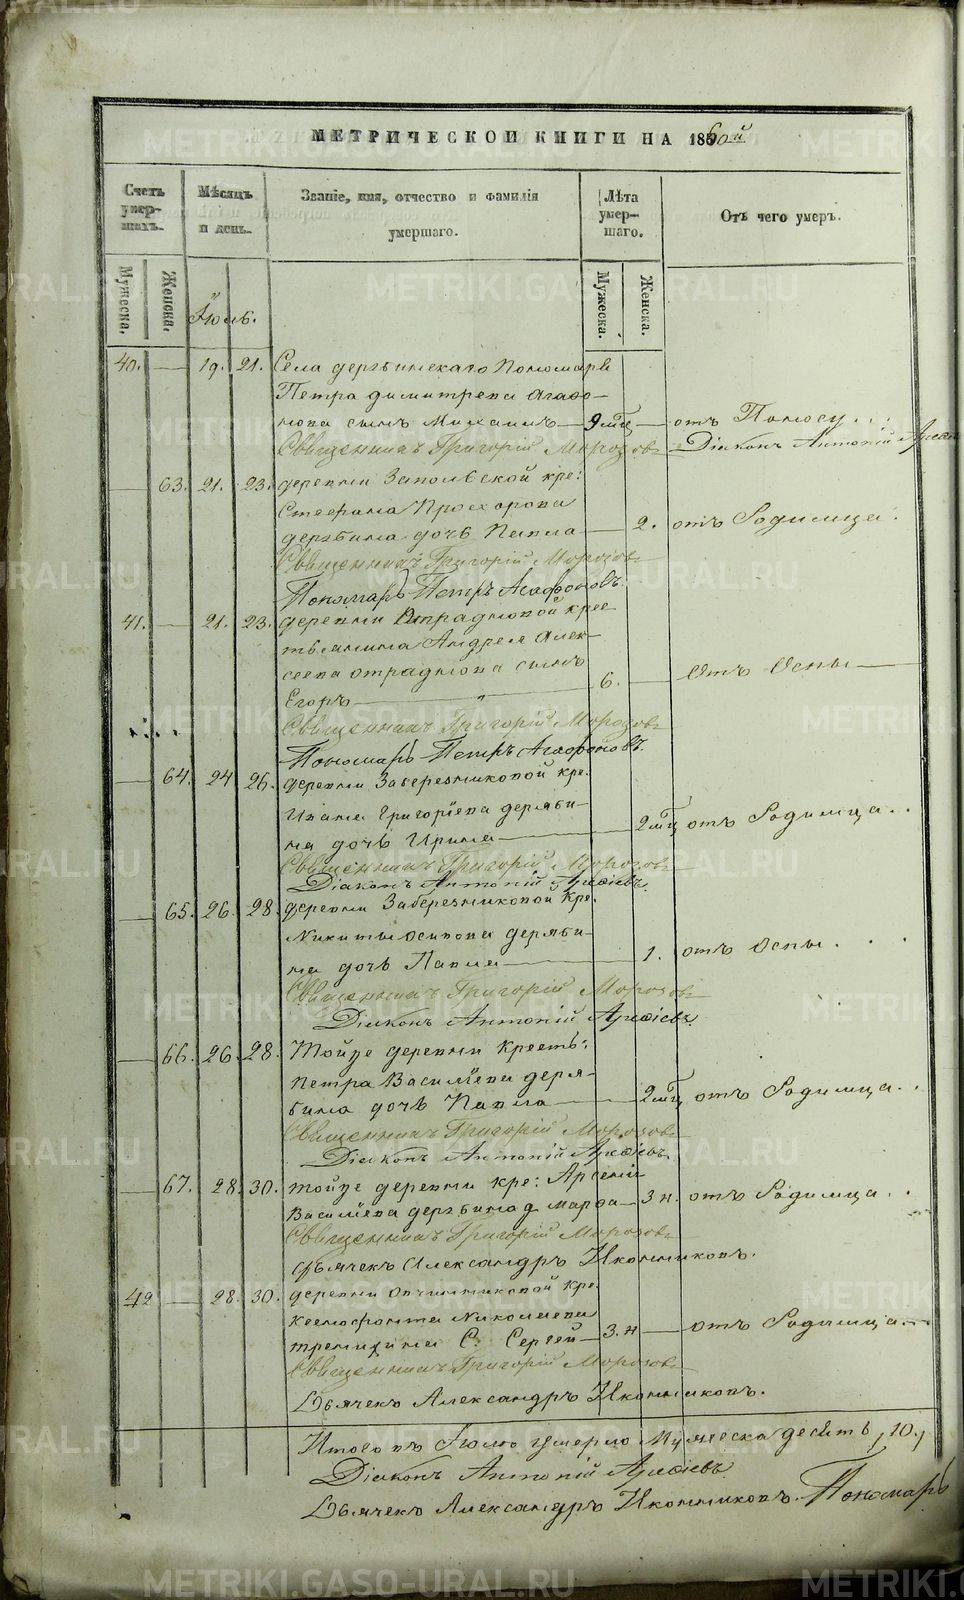 МЕТРИЧЕСКОЙ КНИГИ НА 1860й
Счетъ умер-шихъ.
Мѣсяцъ и день.
Званіе, имя, отчество и фамилія умершаго.
Лѣта умер-шаго.
Отъ чего умеръ.
Мужеска.
Женска.
Мужеска.
Женска.
Іюль.
40. — 19. 21. Села дерябинскаго Пономаря
Петра димитріева Агафо-
нова сынъ Михаилъ — 9 мѣц — отъ Поносу...
Священникъ Григорій Морозовъ Діаконъ Антоній
— 63. 21. 23. деревни Запольской кре:
Стефана Прохорова
дерябина дочь Павла — 2. отъ Родимца.
Священникъ Григорій Морозовъ
Пономарь Петръ Агафоновъ.
41. — 21. 23. деревни Отрадновой крес
тьянина Андрея Алек-
сеева отраднова сынъ
Егоръ — " — 6. — Отъ Оспы —
Священникъ Григорій Морозовъ
Пономарь Петръ Агафоновъ.
— 64. 24 26. деревни Заберезниковой кре.
Ивана Григоріева деряби-
на дочь Ирина — 2 мѣц отъ Родимца...
Священникъ Григорій Морозовъ
Діаконъ Антоній
— 65. 26. 28. деревни Заберезниковой Кре.
Никиты осипова деряби-
на дочь Павла — 1. отъ Оспы...
Священникъ Григорій Морозовъ
Діаконъ Антоній
— 66. 26. 28. Тойже деревни Кресть:
Петра Василіева деря-
бина дочь Павла — 2 мѣц отъ Родимца..
Священникъ Григорій Морозовъ
Діаконъ Антоній
— 67. 28. 30. тойже деревни кре: Арсенія
Василіева дерябина д марфа — 3 н. отъ Родимца...
Священникъ Григорій Морозовъ
Дьячекъ Александръ Иконниковъ.
42 — 28. 30. деревни Овчинниковой кре.
Ксенофонта Николаева
С. Сергей — 3. н — отъ Родимца...
Священникъ Григорій Морозовъ
Дьячекъ Александръ Иконниковъ.
Итого въ Іюлѣ умерло Мужеска десять, 10.,
Діаконъ Антоній
Дьячекъ Александръ Иконниковъ. Пономарь
METRIKI.GASO-URAL.RU